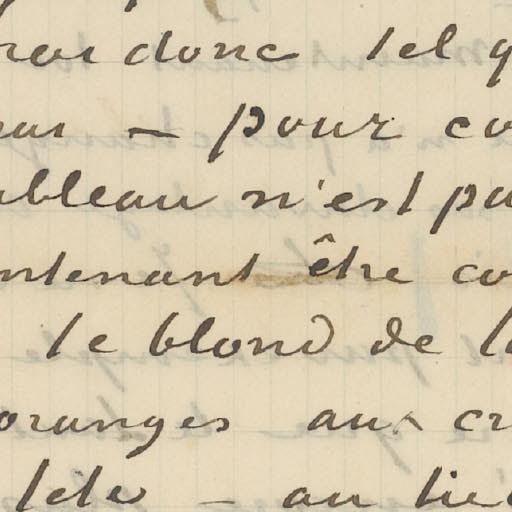 rai donc tel q
pour co
ableau n'est pa
ntenant être co
le blond de la
oranges aux cr
tête – au lie